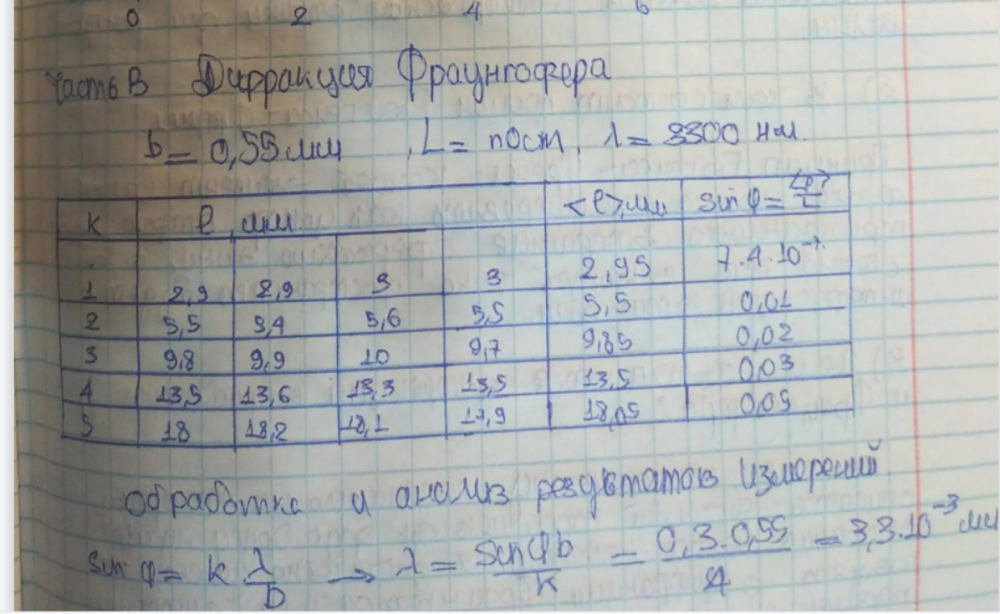 0 2 4 6
Часть В Дифракция Фраунгофера
b = 0,55 мм , L = пост, λ = 3300 нм.
k ℓ, мм <ℓ>, мм sin φ = <ℓ>/L
1 2,9 2,9 3 3 2,95 7.4·10⁻³
2 5,5 5,4 5,6 5,5 5,5 0,01
3 9,8 9,9 10 9,7 9,85 0,02
4 13,5 13,6 13,3 13,5 13,5 0,03
5 18 18,2 18,1 17,9 18,05 0,05
Обработка и анализ результатов измерений
sin φ = k λ/b → λ = sinφb/k = 0,3·0,55/4 = 3,3·10⁻³ мм